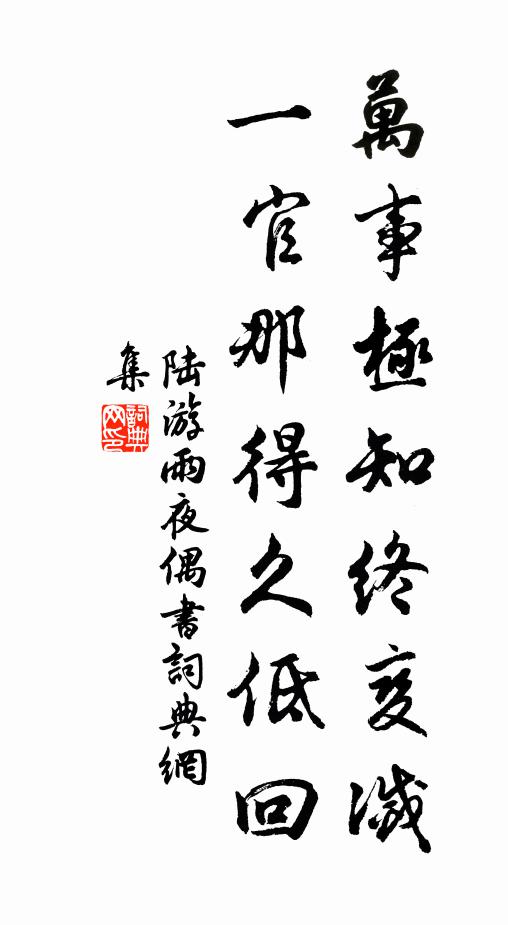 萬事極知終變滅
一官那得久低回
陸游雨夜偶書詞典網
集
詞典網印